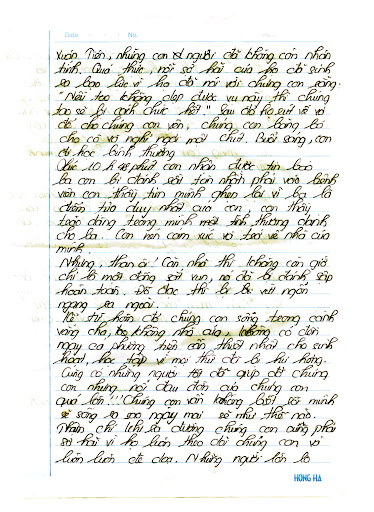 Date No.
Xuân Tiến, những con người đã không còn nhân
tính. Quả thực, nỗi sợ hãi của họ đã sinh
ra bạo lực vì họ đã nói với chúng con rằng:
"Nếu tao không dẹp được vụ này thì chúng
tao sẽ bị cách chức hết." Sau đó họ
để cho chúng con yên, chúng con bảng
cho cả với nghỉ ngơi một chút. Buổi sáng, con
đi học bình thường
Lúc 10 h phút con nhận được tin báo
ba con bị đánh, sợ tàn nhẫn phải vào bệnh
viện con thấy tim mình ghẹn lại vì ba là
điểm tựa duy nhất của con. con thấy
trong mình một tình thương dành
cho ba. Con nén cảm xúc và trở về nhà của
mình.
Nhưng, than ôi! Căn nhà thì không còn giờ
chỉ là một đống sắt vụn, nó đã bị đánh sập
hoàn toàn. Đồ đạc thì bị vứt ngổn
ngang ra ngoài.
Kể từ hôm đó chúng con sống trong cảnh
vắng cha, không nhà cửa, không có đến
ngay cả phương tiện cần thiết nhất cho sinh
hoạt, học tập vì mọi thứ đã bị hư hỏng.
Cũng có những người tới để giúp đỡ chúng
con nhưng nỗi đau đớn của chúng con
quá lớn!!! Chúng con vẫn không biết rồi mình
sẽ sống ra sao, ngày mai sẽ như thế nào.
Thậm chí khi dưỡng chúng con cũng phải
sợ hãi vì họ luôn theo dõi chúng con và
luôn luôn đe dọa. Những người lớn là
HONG HA